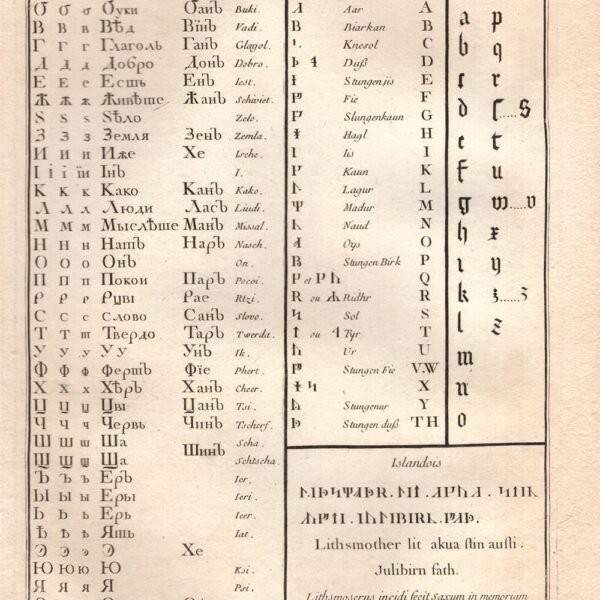 Б б б Буки Оаиъ Buki.
В в в Вѣд Винъ Vadi.
Г г г Глаголь Ганъ Glagol.
Д д д Добро Донъ Dobro.
Е Е е Есть Енъ Iest.
Ж ж ж Живѣте Жанъ Schiviet.
Ѕ ѕ ѕ Ѕѣло Zelo.
З З з Земля Зенъ Zemla.
И И и Иже Хе Ische.
І і ї Інъ I.
К К к Како Канъ Kako.
Л Л л Люди Ласъ Liudi.
М М м Мыслѣте Манъ Missal.
Н Н н Нашъ Наръ Nasch.
О О о Онъ On.
П П п Покои Паръ Pocoi.
Р Р р Рцви Рае Rizi.
С С с Слово Санъ Slovo.
Т Т т Твердо Таръ Twerda.
У У у У у Унъ Ik.
Ф Ф ф Фертъ Фїе Phert.
Х Х х Хѣръ Ханъ Cheer.
Ц Ц ц Цви Цанъ Tsi.
Ч Ч ч Червь Чинъ Tscherf.
Ш Ш ш Ша Шинъ Scha.
Щ Щ щ Ща Schtscha.
Ъ Ъ ъ Еръ Ier.
Ы Ы ы Еры Ieri.
Ь Ь ь Ерь Ieer.
Ѣ Ѣ ѣ Ять Iat.
Э Э э Э Хе
Ю Ю ю Ю Ksi.
Я Я я Я Psi.
Aar A
Biarkan B
Knesol C
Duß D
Stungenjis E
Fie F
Slungenkaun G
Hagl H
Iis I
Kaun K
Lagur L
Madur M
Naud N
Oys O
Stungen Birk P
et Q
ou Ridhr R
Sol S
ou Tyr T
Ur U
Stungen Fie V.W
X
Stungenur Y
Stungen duß TH
a p
b q
c r
d ſ.....S
e t
f u
g w.....v
h x
i y
k ʒ....3
l z
m
n
o
Islandois
Lithsmother lit akua stin aufti.
Julibirn fath.
Lithsmoserus incidi fecit Saxum in memoriam